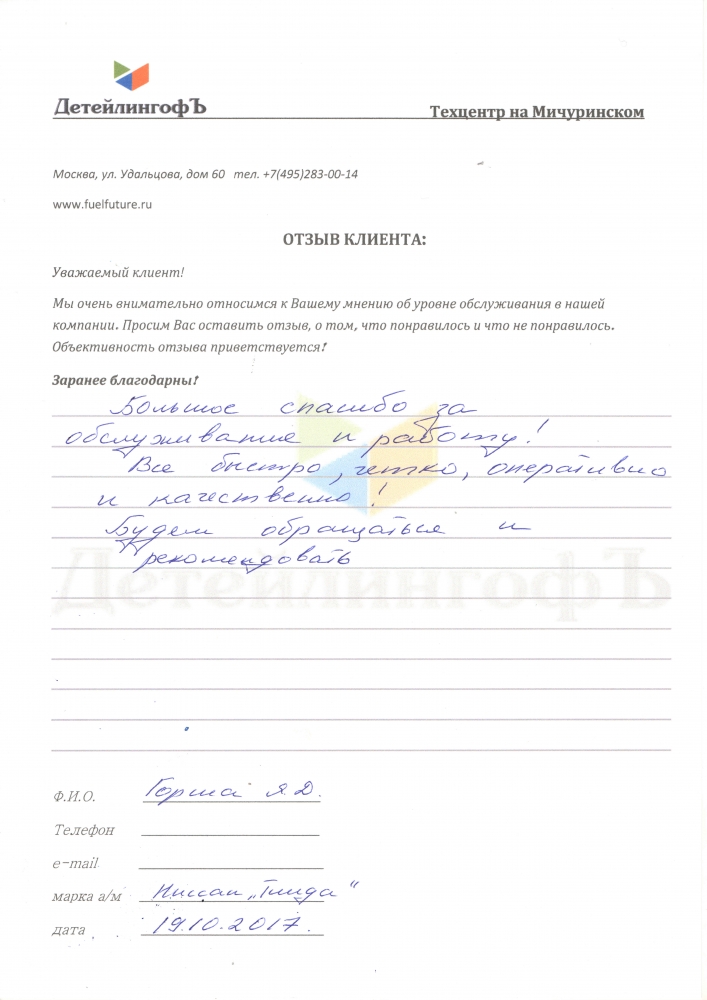 ДетейлингофЪ
Техцентр на Мичуринском
Москва, ул. Удальцова, дом 60 тел. +7(495)283-00-14
www.fuelfuture.ru
ОТЗЫВ КЛИЕНТА:
Уважаемый клиент!
Мы очень внимательно относимся к Вашему мнению об уровне обслуживания в нашей
компании. Просим Вас оставить отзыв, о том, что понравилось и что не понравилось.
Объективность отзыва приветствуется!
Заранее благодарны!
Большое спасибо за
обслуживание и работу!
Все быстро, четко, оперативно
и качественно!
Будем обращаться и
рекомендовать
ДетейлингофЪ
Ф.И.О. Я.Д.
Телефон
e-mail
марка а/м Ниссан „Тиида“
дата 19.10.2017.